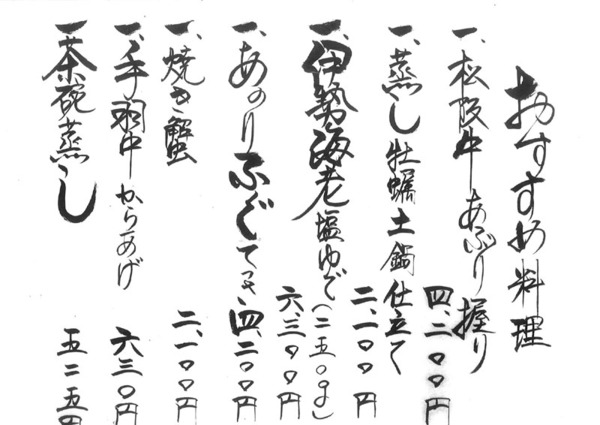 おすすめ料理
一、松阪牛あぶり握り 四、二〇〇円
一、蒸し牡蠣土鍋仕立て 二、一〇〇円
一、伊勢海老塩ゆで(二五〇g) 六、三〇〇円
一、あのりふぐてっさ 四、二〇〇円
一、焼き蟹 二、一〇〇円
一、手羽中からあげ 六三〇円
一、茶碗蒸し 五二五円